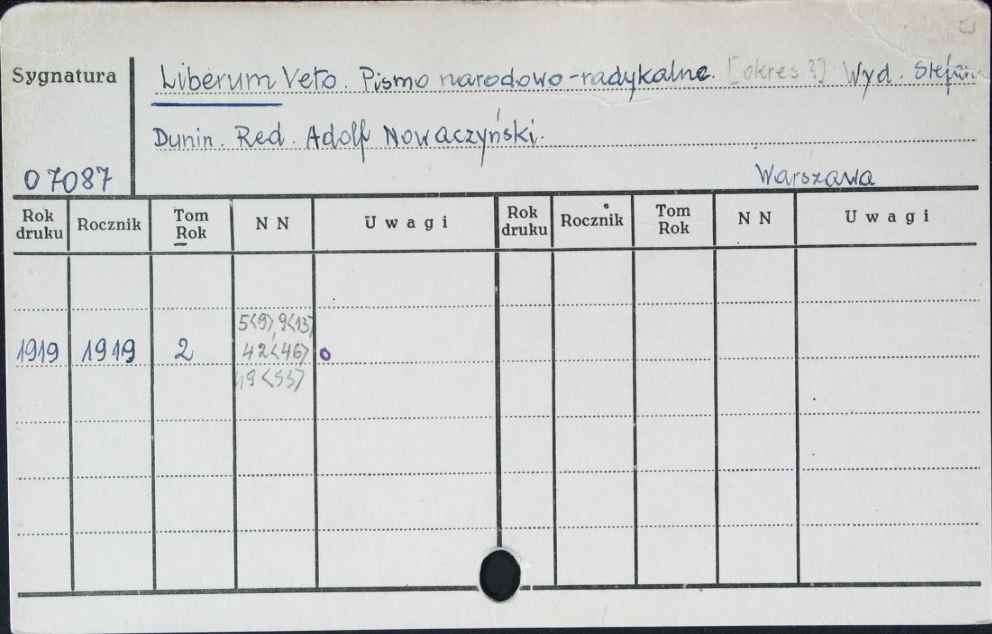 Sygnatura
Liberum Veto. Pismo narodowo-radykalne. [okres ?] Wyd. Stefan
Dunin. Red. Adolf Nowaczyński.
07087
Warszawa
Rok druku Rocznik Tom Rok N N Uwagi Rok druku Rocznik Tom Rok N N Uwagi
5<9>, 9<13>
1919 1919 2 42<46> o
49<53>